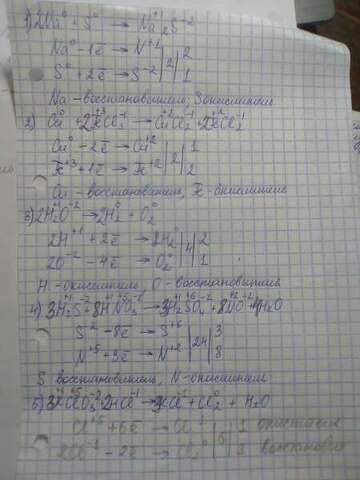 1) 2Na⁰ + S⁰ → Na₂⁺S⁻²
Na⁰ - 1ē → N⁺¹ | 2 | 2
S⁰ + 2ē → S⁻² | 1
Na - восстановитель, S окислитель
2) Cu⁰ + 2Fe⁺³Cl₃⁻¹ → Cu⁺²Cl₂⁻¹ + 2Fe⁺²Cl₂⁻¹
Cu⁰ - 2ē → Cu⁺² | 2 | 1
Fe⁺³ + 1ē → Fe⁺² | 2
Cu - восстановитель, Fe - окислитель
3) 2H₂⁺¹O⁻² → 2H₂⁰ + O₂⁰
2H⁺¹ + 2ē → H₂⁰ | 4 | 2
2O⁻² - 4ē → O₂⁰ | 1
H - окислитель, O - восстановитель
4) 3H₂⁺¹S⁻² + 8H⁺¹N⁺⁵O₃⁻² → 3H₂⁺¹S⁺⁶O₄⁻² + 8N⁺²O⁻² + 4H₂O
S⁻² - 8ē → S⁺⁶ | 24 | 3
N⁺⁵ + 3ē → N⁺² | 8
S восстановитель, N - окислитель
5) + H₂O
Cl⁺⁵ + 6ē → Cl | 6 | 1 окислитель
2Cl⁻¹ - 2ē → Cl₂⁰ | 3